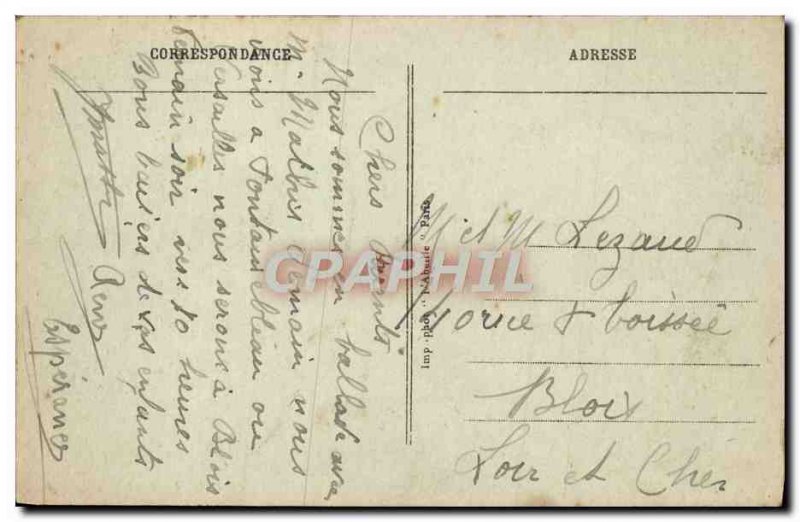 CORRESPONDANCE
ADRESSE
Chers Parents
Nous sommes en ballade avec
M. Malbis demain nous
irons a Fontainebleau ou
Versailles nous serons à Blois
demain soir vers 10 heures
Bons baisers de vos enfants
René
Espérance
Imp. phot. "l'Abeille" Paris
M et M Lezaud
Blois
Loir et Cher
CPAPHIL